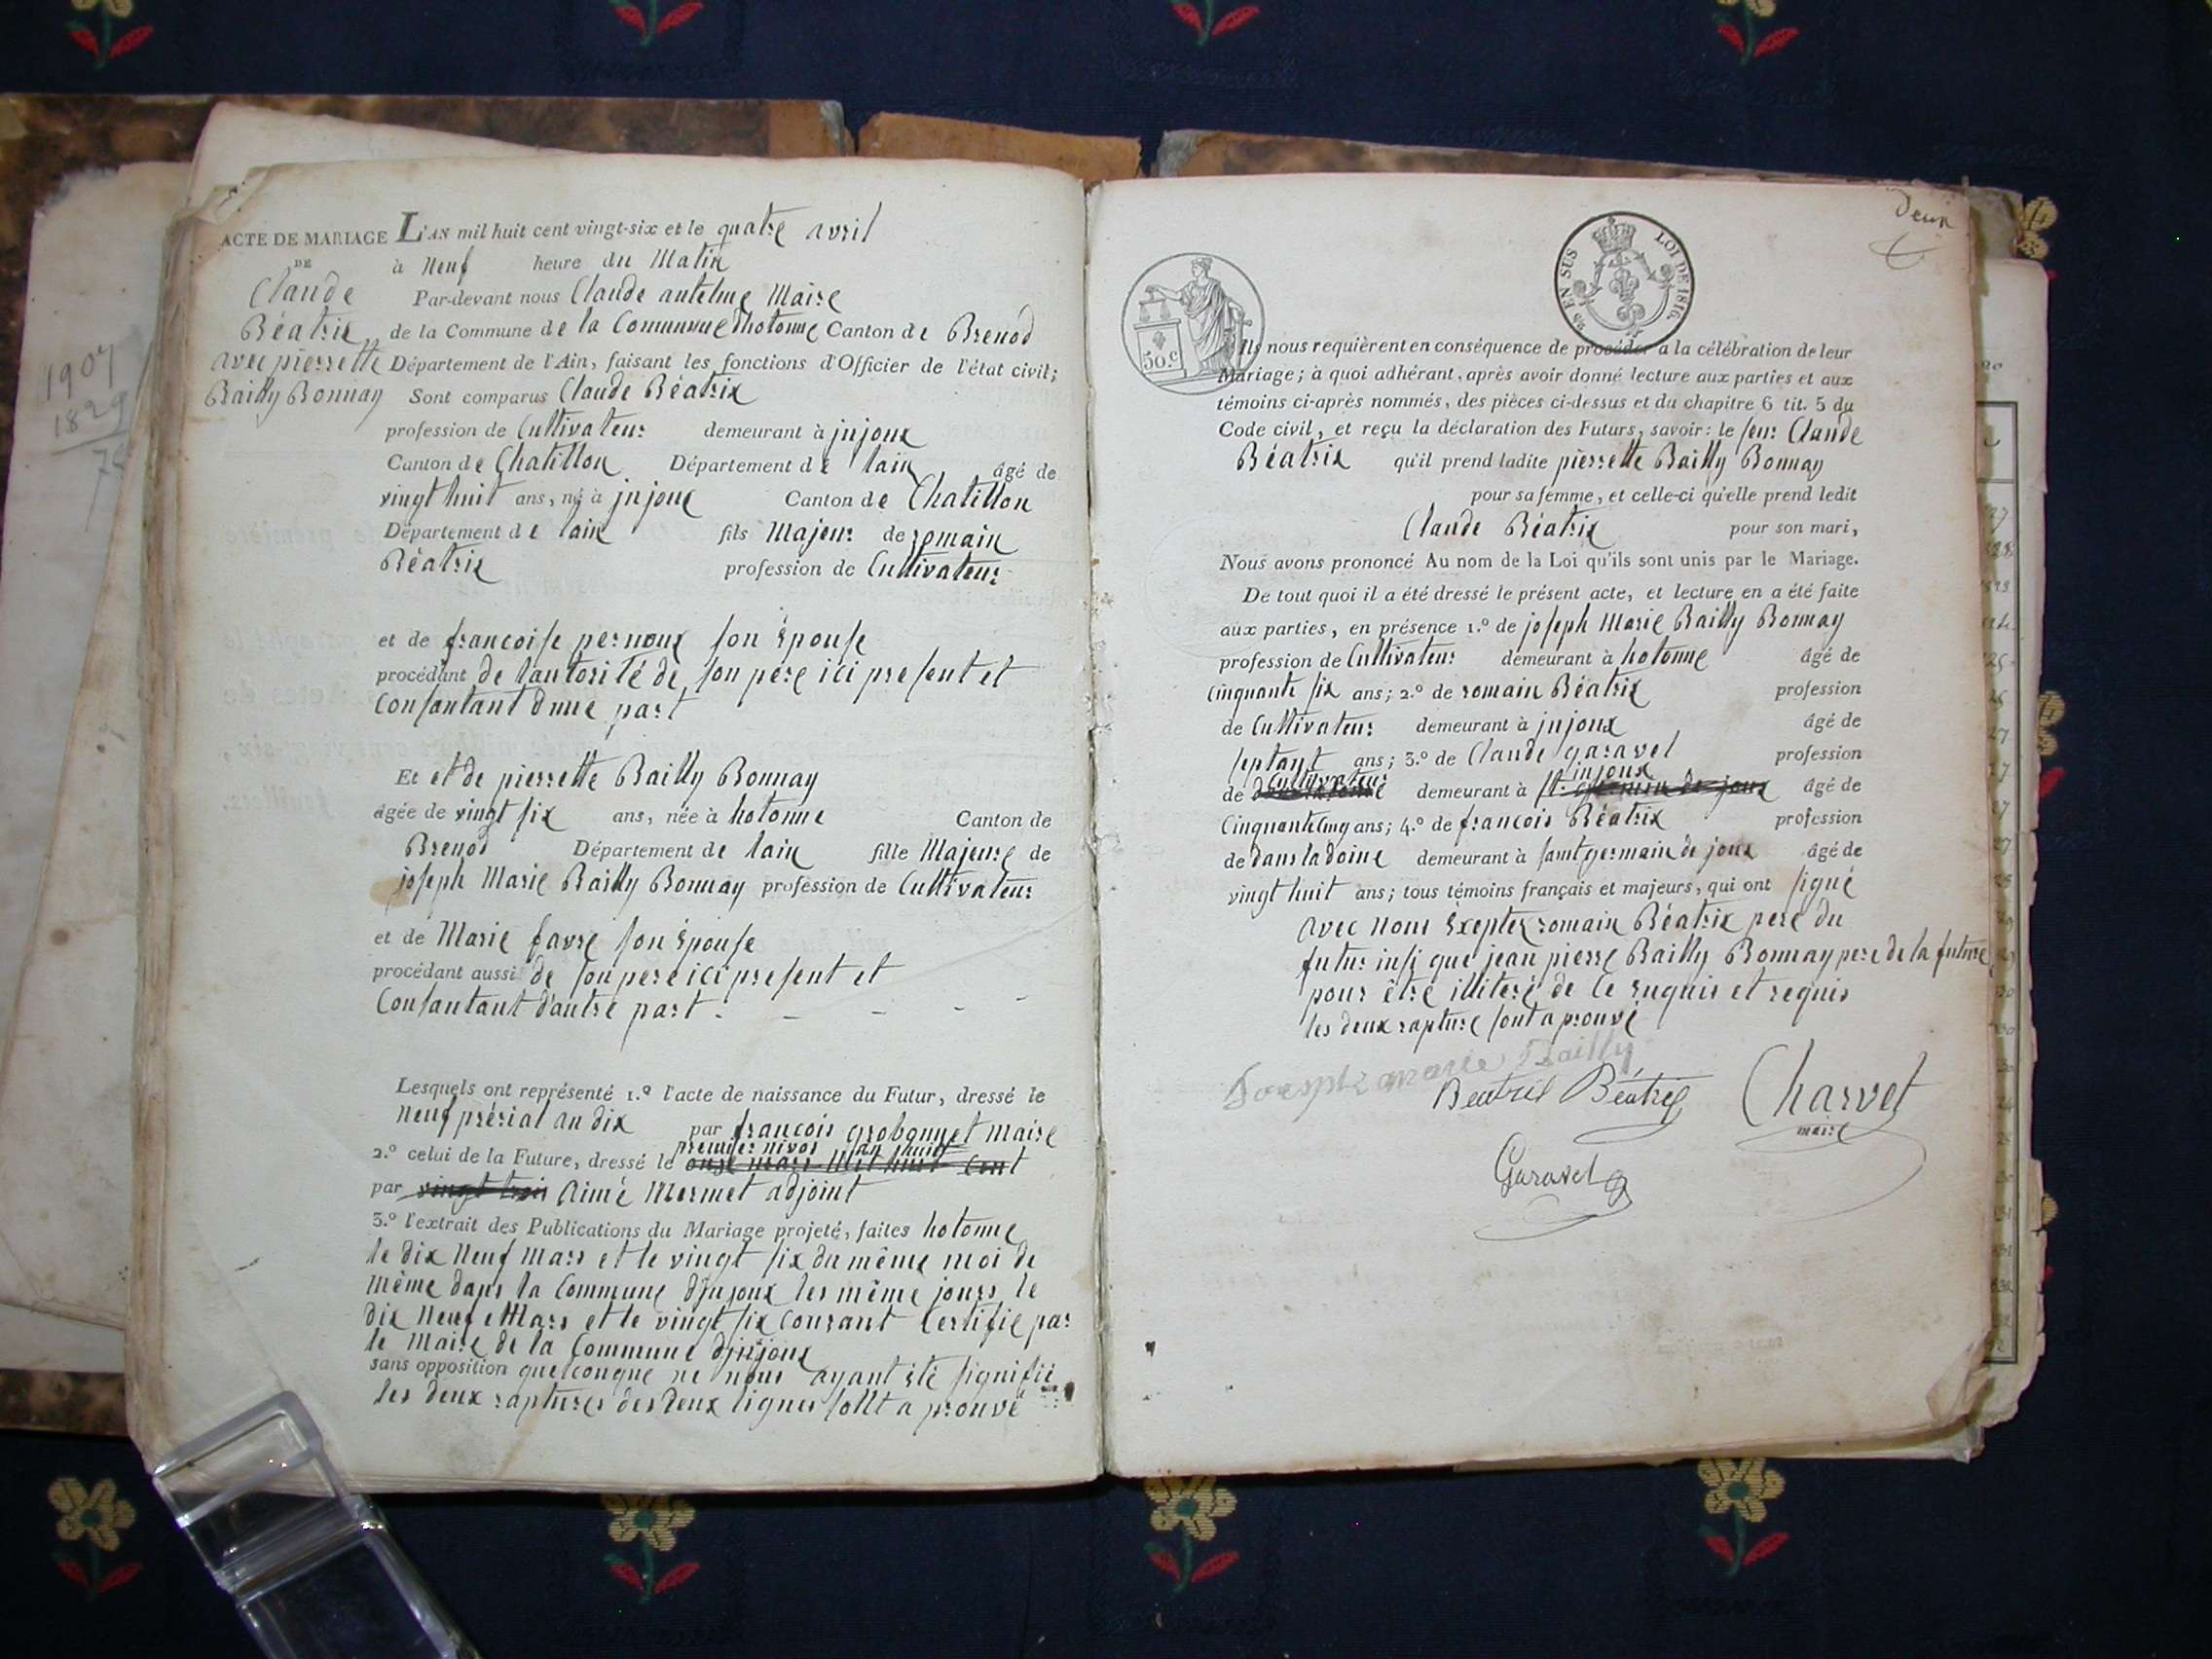 ACTE DE MARIAGE
DE
Claude
Béatrix
avec pierrette
Bailly Bonnay
L'AN mil huit cent vingt-six et le quatre avril
à Neuf heure du Matin
Par-devant nous Claude antelme Maire
de la Commune de la Commune dhotonne Canton de Brenod
Département de l'Ain, faisant les fonctions d'Officier de l'état civil;
Sont comparus Claude Béatrix
profession de Cultivateur demeurant à jnjoux
Canton de Chatillon Département de lain âgé de
vingt huit ans, né à jnjoux Canton de Chatillon
Département de lain fils Majeur de romain
Béatrix profession de Cultivateur
et de francoise pernoux son Epouse
procédant de lautorité de son pere ici present et
Consantant dune part
Et et de pierrette Bailly Bonnay
âgée de vingt six ans, née à hotonne Canton de
Brenod Département de lain fille Majeure de
joseph Marie Bailly Bonnay profession de Cultivateur
et de Marie favre son Epouse
procédant aussi de son pere ici present et
Consantant d'autre part - - - -
Lesquels ont représenté 1.º l'acte de naissance du Futur, dressé le
neuf prérial an dix par francois grobonnet maire
premier nivos an huit
2.º celui de la Future, dressé le onze mars mil huit cent
par vingt trois Aimé Mermet adjoint
3.º l'extrait des Publications du Mariage projeté, faites hotonne
le dix neuf mars et le vingt six du même moi de
même dans la Commune djnjoux les même jours le
dix neuf Mars et le vingt six courant Certifié par
le Maire de la Commune djnjoux
sans opposition quelconque ne nous ayant été signifié
les deux raptures des deux lignes sont a prouvé
deux
50.c
25 EN SUS LOI DE 1816.
Ils nous requièrent en conséquence de procéder à la célébration de leur
Mariage; à quoi adhérant, après avoir donné lecture aux parties et aux
témoins ci-après nommés, des pièces ci-dessus et du chapitre 6 tit. 5 du
Code civil, et reçu la déclaration des Futurs, savoir: le seur Claude
Béatrix qu'il prend ladite pierrette Bailly Bonnay
pour sa femme, et celle-ci qu'elle prend ledit
Claude Béatrix pour son mari,
Nous avons prononcé Au nom de la Loi qu'ils sont unis par le Mariage.
De tout quoi il a été dressé le présent acte, et lecture en a été faite
aux parties, en présence 1.º de joseph Marie Bailly Bonnay
profession de Cultivateur demeurant à hotonne âgé de
Cinquante six ans; 2.º de romain Béatrix profession
de Cultivateur demeurant à jnjoux âgé de
septant ans; 3.º de Claude garavel profession
Cultivateur injoux
de demeurant à st. germain de joux âgé de
Cinquante Cinq ans; 4.º de francois Béatrix profession
de dans la doine demeurant à saint germain de joux âgé de
vingt huit ans; tous témoins français et majeurs, qui ont signé
avec nous Exeptez romain Béatrix pere du
futur insi que jean pierre Bailly Bonnay pere de la future
pour être illiteré de Ce enquis et requis
les deux rapture sont a prouvé
Joseph marie Bailly
Beatrix Béatrix Charvet
maire
Garavel
1907
1829